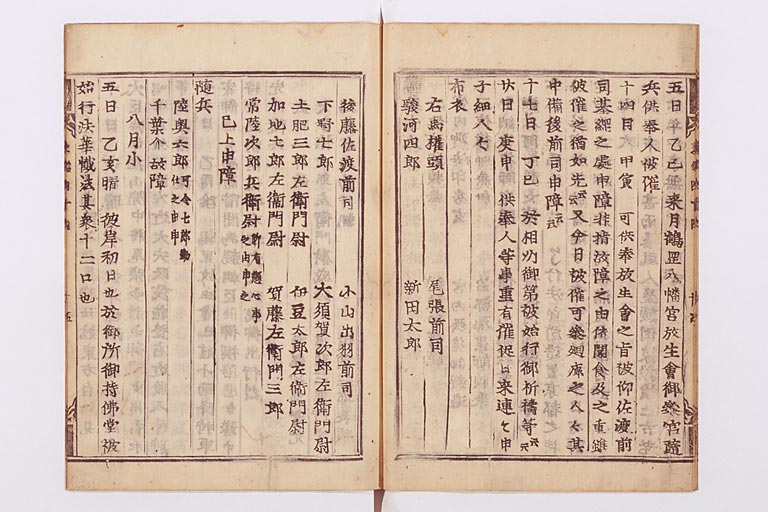 五日 乙巳 來月鶴岡八幡宮放生會御參宮隨
兵供奉人被催
十四日 甲寅 可供奉放生會之旨被仰佐渡前
司基綱之處申障非指故障之由依聞食及之重雖
被催之猶如先云云又今日被催可參廻廊之人々其
中備後前司申障云云
十七日 丁巳 於相州御第被始行御祈禱等云云
廿日 庚申 供奉人等事重有催促日來連々申
子細人々
布衣
右馬權頭 尾張前司
駿河四郎 新田太郎
後藤佐渡前司 小山出羽前司
下野七郎 大須賀次郎左衛門尉
土肥三郎左衛門尉 伊豆太郎左衛門尉
加地七郎左衛門尉 賀藤左衛門三郎
常陸次郎兵衛尉
已上申障
隨兵
陸奧六郎 可令七郎勤仕之由申
千葉介故障
八月小
五日 乙亥 晴 彼岸初日也於御所御持佛堂被
始行法華懺法其衆十二口也